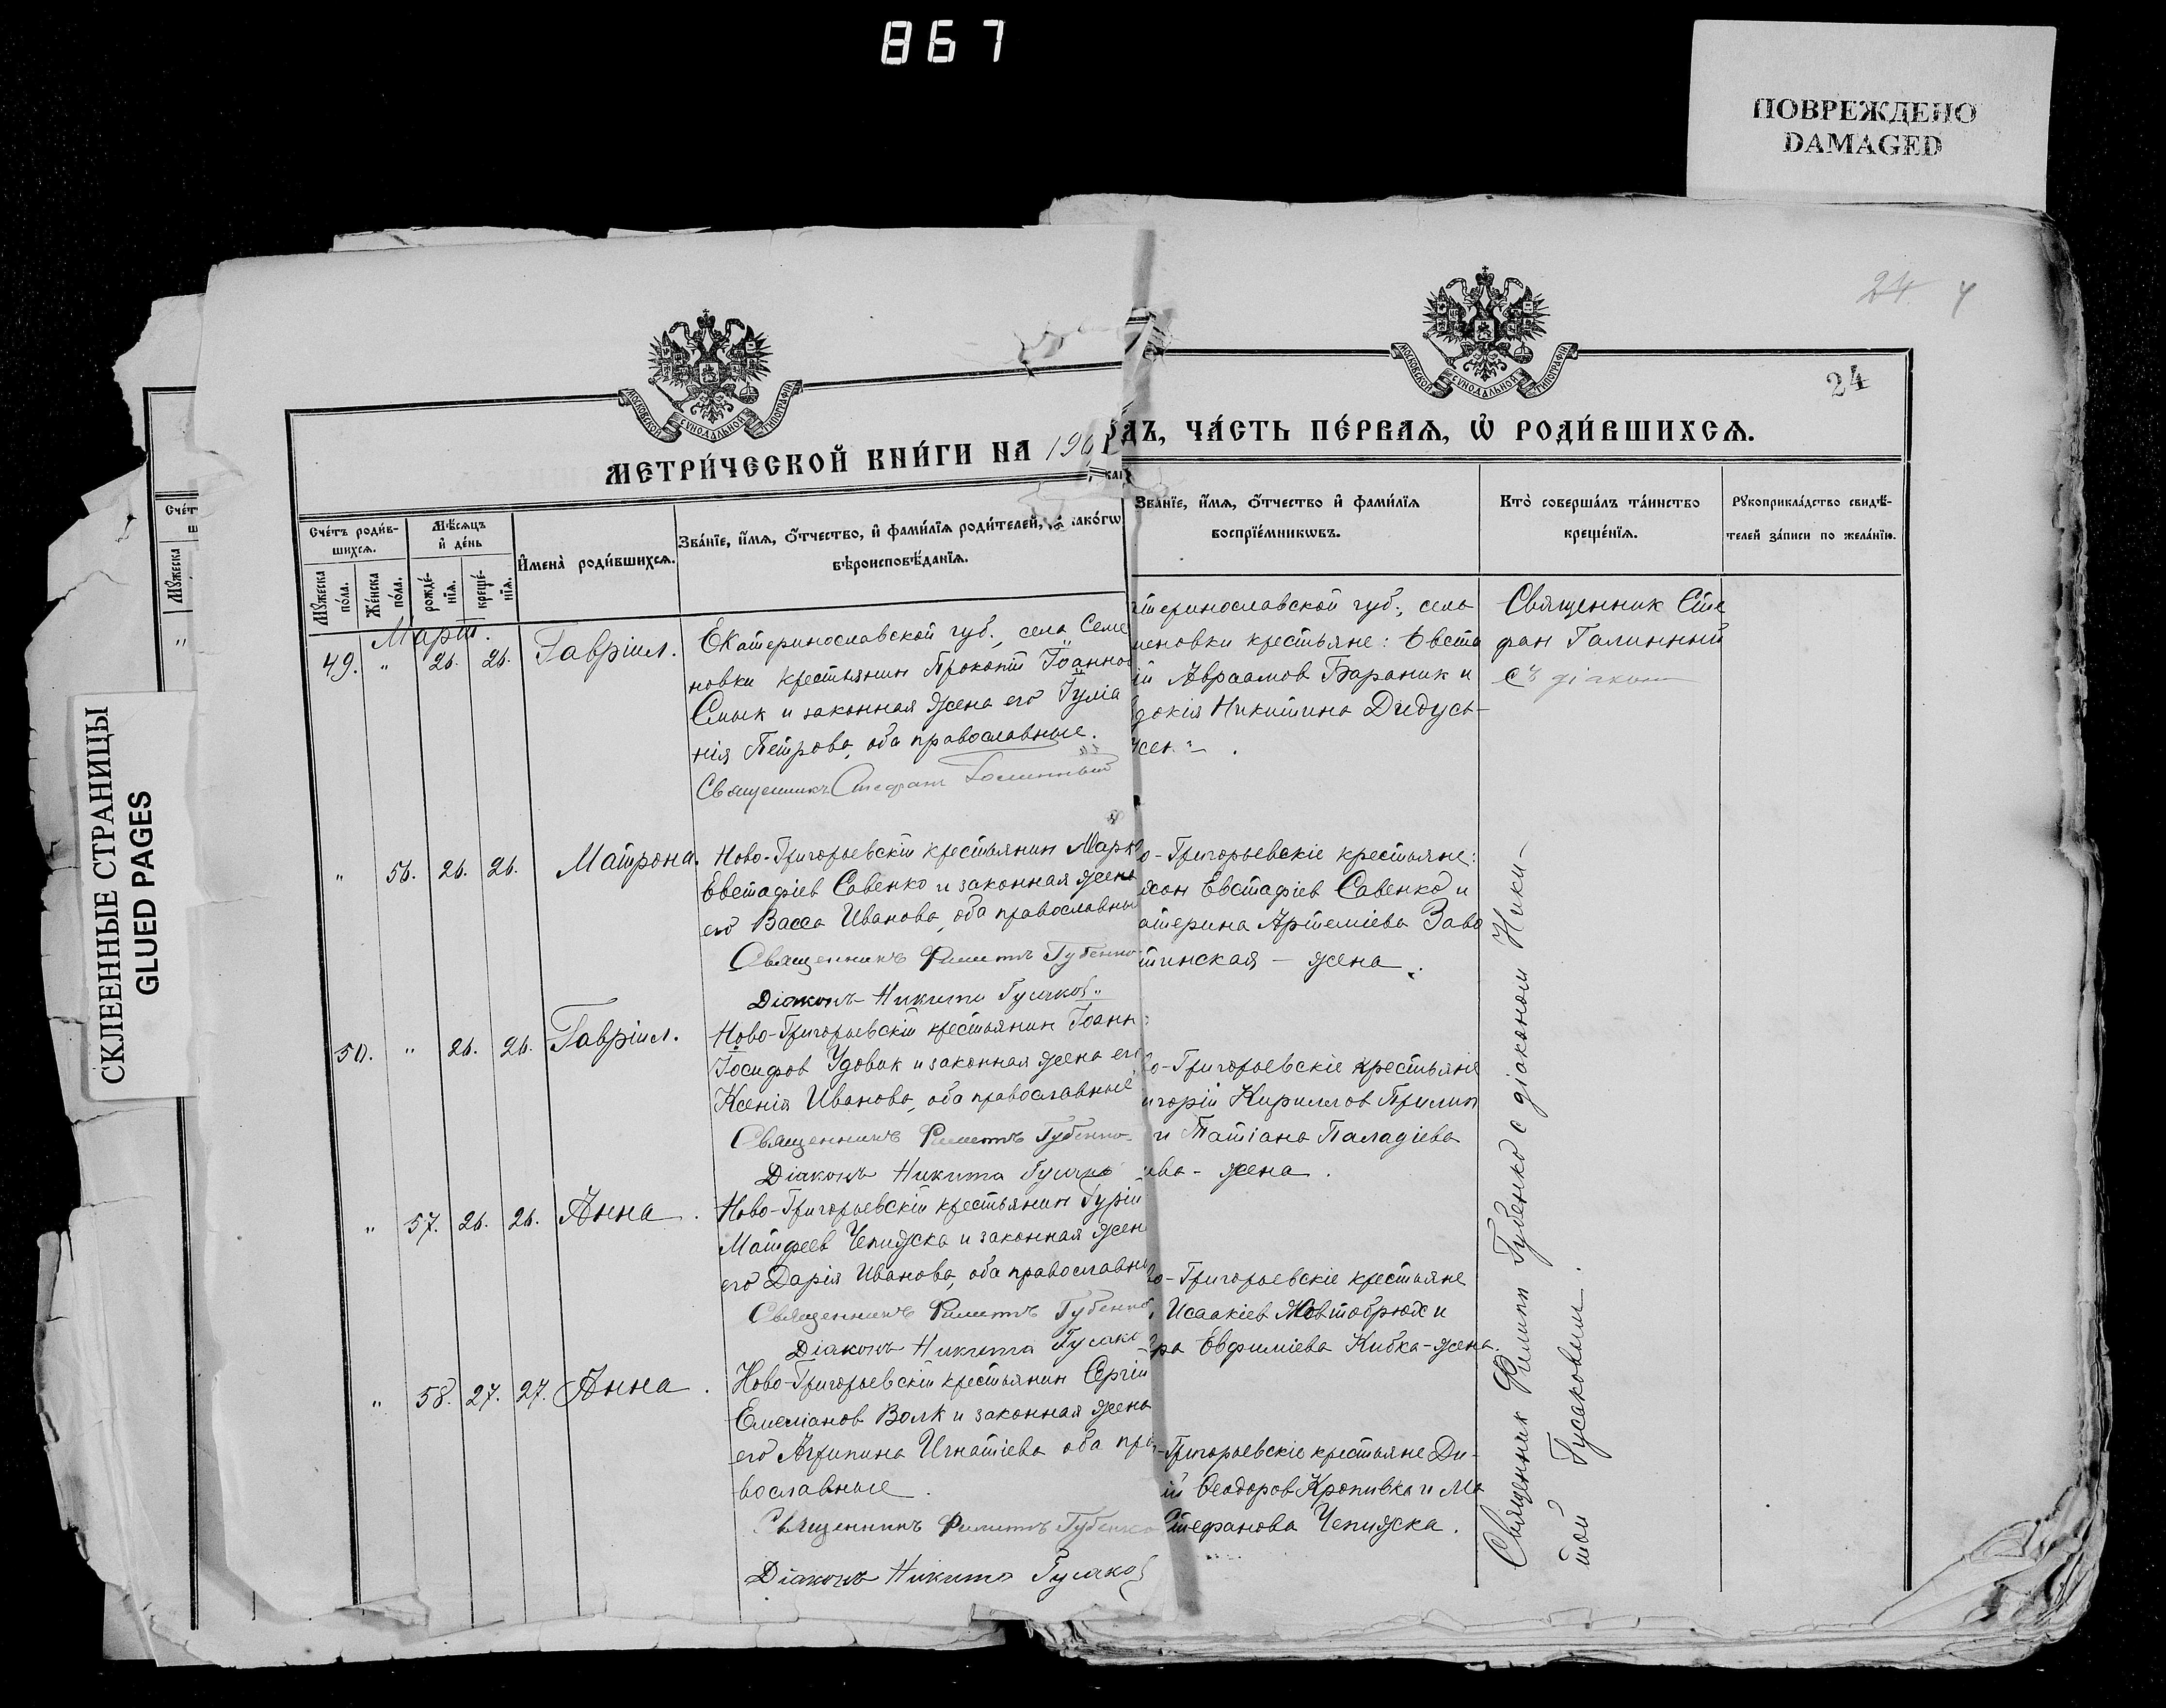 867
ПОВРЕЖДЕНО
DAMAGED
СКЛЕЕННЫЕ СТРАНИЦЫ
GLUED PAGES
24. 4
24
МОСКОВСКОЙ СѴНОДАЛЬНОЙ ТИПОГРАФІИ
МОСКОВСКОЙ СѴНОДАЛЬНОЙ ТИПОГРАФІИ
МЕТРИ́ЧЕСКОЙ КНИ́ГИ НА 190
ДЪ, ЧА́СТЬ ПЕ́РВАѦ, Ѽ РОДИ́ВШИХСѦ.
Сче́тъ роди́в-
шихсѧ.
Мꙋ́жеска по́ла.
Же́нска по́ла.
Мѣ́сѧцъ
и҆ де́нь
рожде́-
нїѧ.
креще́-
нїѧ.
И҆мена̀ роди́вшихсѧ.
Зва́нїе, и҆́мѧ, ѻ҆́тчество, и҆ фами́лїѧ роди́телей, и҆ како́гѡ
вѣроисповѣ́данїѧ.
Зва́нїе, и҆́мѧ, ѻ҆́тчество и҆ фами́лїѧ
воспрїе́мникѡвъ.
Кто̀ соверша́лъ та́инство
креще́нїѧ.
Рꙋкоприкла́дство свидѣ́-
телей за́писи по жела́нїю.
Мартъ.
49. " 26. 26. Гавріил.
Екатеринославской губ., села Семе
новки крестьянин Прокопт Іоаннов
Смык и законная жена его Іуліа
нія Петрова, оба православные.
Священникъ Стефанъ Галинный
теринославской губ., села
меновки крестьяне: Евста
ій Авраамов Бараник и
докія Никитина Дидусь-
жен.
Священник Сте
фан Галинный
съ діакон
" 56. 26. 26. Матрона.
Ново-Григорьевскій крестьянин Марк
Евстафіев Савенко и законная жена
его Васса Иванова, оба православны
Священникъ Филиппъ Губенко
Діаконъ Никита Гусаков
о-Григорьевскіе крестьяне:
хон Евстафіев Савенко и
атерина Артеміева Заво
тинская - жена.
50. " 26. 26. Гавріил.
Ново-Григорьевскій крестьянин Іоанн
Іосифов Удовик и законная жена его
Ксенія Иванова, оба православные
Священникъ Филиппъ Губенко
Діаконъ Никита Гусако
о-Григорьевскіе крестьяне
игорій Кириллов Прилип
и Татіана Паладіева
ева - жена.
" 57. 26. 26. Анна.
Ново-Григорьевскій крестьянин Гурій
Матфеев Чепижка и законная жен
его Дарія Иванова, оба православны
Священникъ Филиппъ Губенко
Діаконъ Никита Гусако
во-Григорьевскіе крестьяне
Исаакіев Жовтобрюх и
ра Евфиміева Кибка-жена.
" 58. 27. 27. Анна.
Ново-Григорьевскій крестьянин Сергій
Емеліанов Волк и законная жена
его Агрипина Игнатіева оба пра
вославные.
Священникъ Филиппъ Губенко
Діаконъ Никита Гусаков
-Григорьевскіе крестьяне Ди-
ій Феодоров Кропивка и Ма
Стефанова Чепижка.
Священник Филипп Губенко с діаконом Ники-
той Гусаковым.
Сче́т
Мꙋ́жеска
"